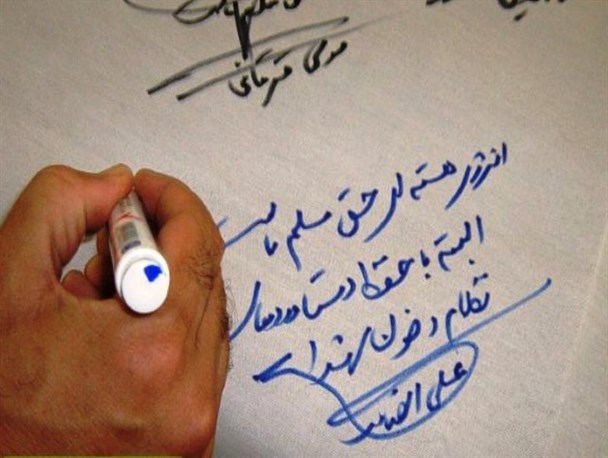 موسی قربانی
انرژی هسته ای حق مسلم ماست
البته با حفظ دستاوردهای
نظام و خون شهدا
علی